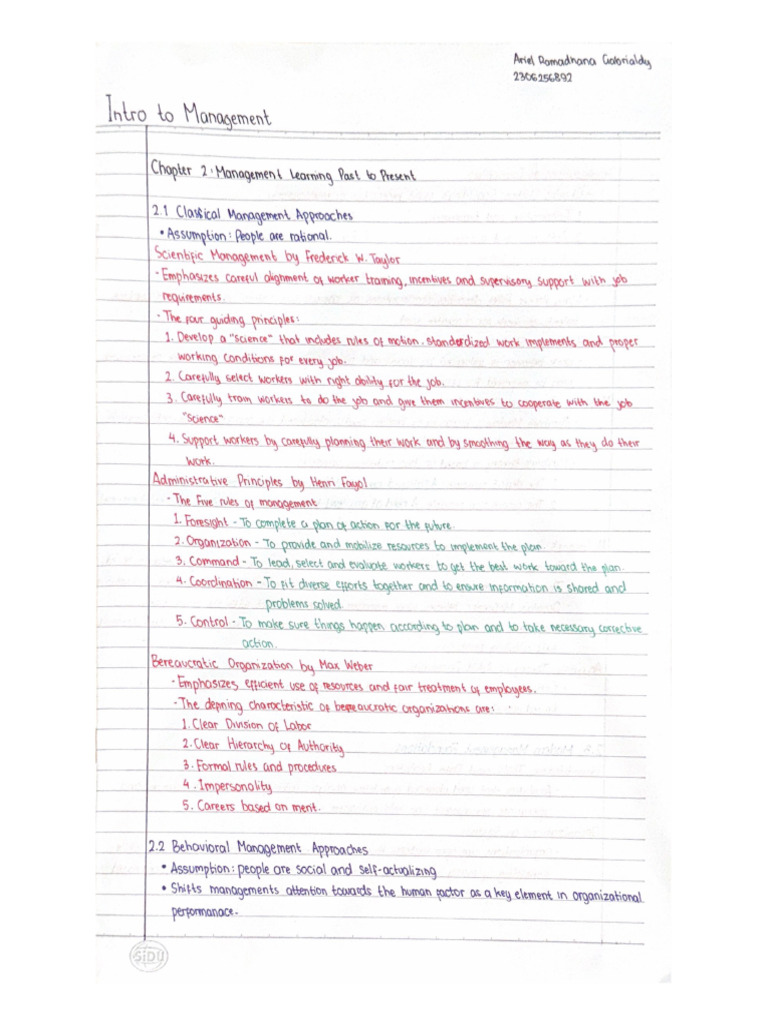 Ariel Ramadhana Gabrialdy
2306256892
Intro to Management
Chapter 2: Management Learning Past to Present
2.1 Classical Management Approaches
• Assumption: People are rational.
Scientific Management by Frederick W. Taylor
- Emphasizes careful alignment of worker training, incentives and supervisory support with job
requirements.
- The four guiding principles:
1. Develop a "science" that includes rules of motion, standardized work implements and proper
working conditions for every job.
2. Carefully select workers with right ability for the job.
3. Carefully train workers to do the job and give them incentives to cooperate with the job
"science"
4. Support workers by carefully planning their work and by smoothing the way as they do their
work.
Administrative Principles by Henri Fayol
- The Five rules of management
1. Foresight - To complete a plan of action for the future.
2. Organization - To provide and mobilize resources to implement the plan.
3. Command - To lead, select and evaluate workers to get the best work toward the plan.
4. Coordination - To fit diverse efforts together and to ensure information is shared and
problems solved.
5. Control - To make sure things happen according to plan and to take necessary corrective
action.
Bereaucratic Organization by Max Weber
- Emphasizes efficient use of resources and fair treatment of employees.
- The defining characteristic of bereaucratic organizations are:
1. Clear Division of Labor
2. Clear Hierarchy of Authority
3. Formal rules and procedures
4. Impersonality
5. Careers based on merit.
2.2 Behavioral Management Approaches
• Assumption: people are social and self-actualizing
• Shifts managements attention towards the human factor as a key element in organizational
performanace.
SiDU